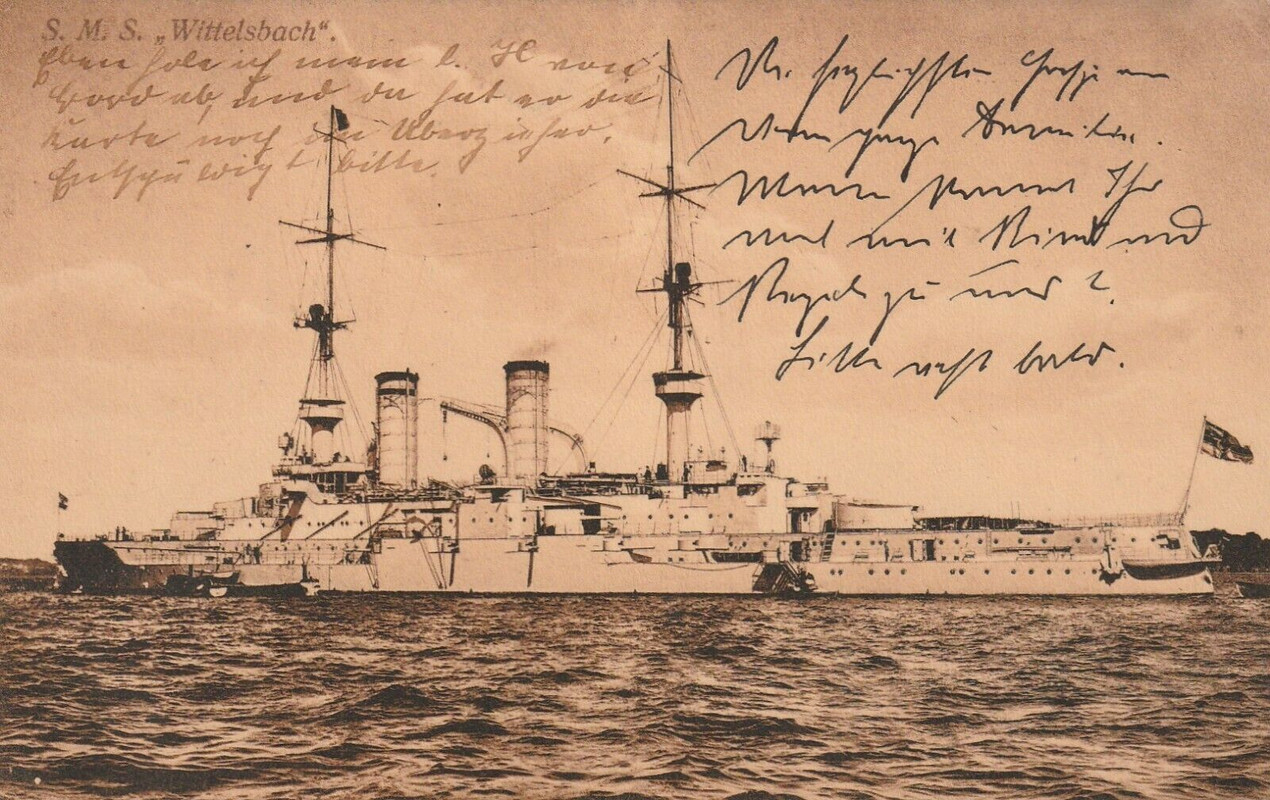 S. M. S. „Wittelsbach“.
Eben hole ich mein l. H von
Bord ab, und da hat er die
Karte noch im Überzieher.
Entschuldigt bitte.
Die herzlichsten Grüße an
ganze Familie.
Wann kommt Ihr
mal mit Kind und
Kegel zu uns?
Bitte recht bald.